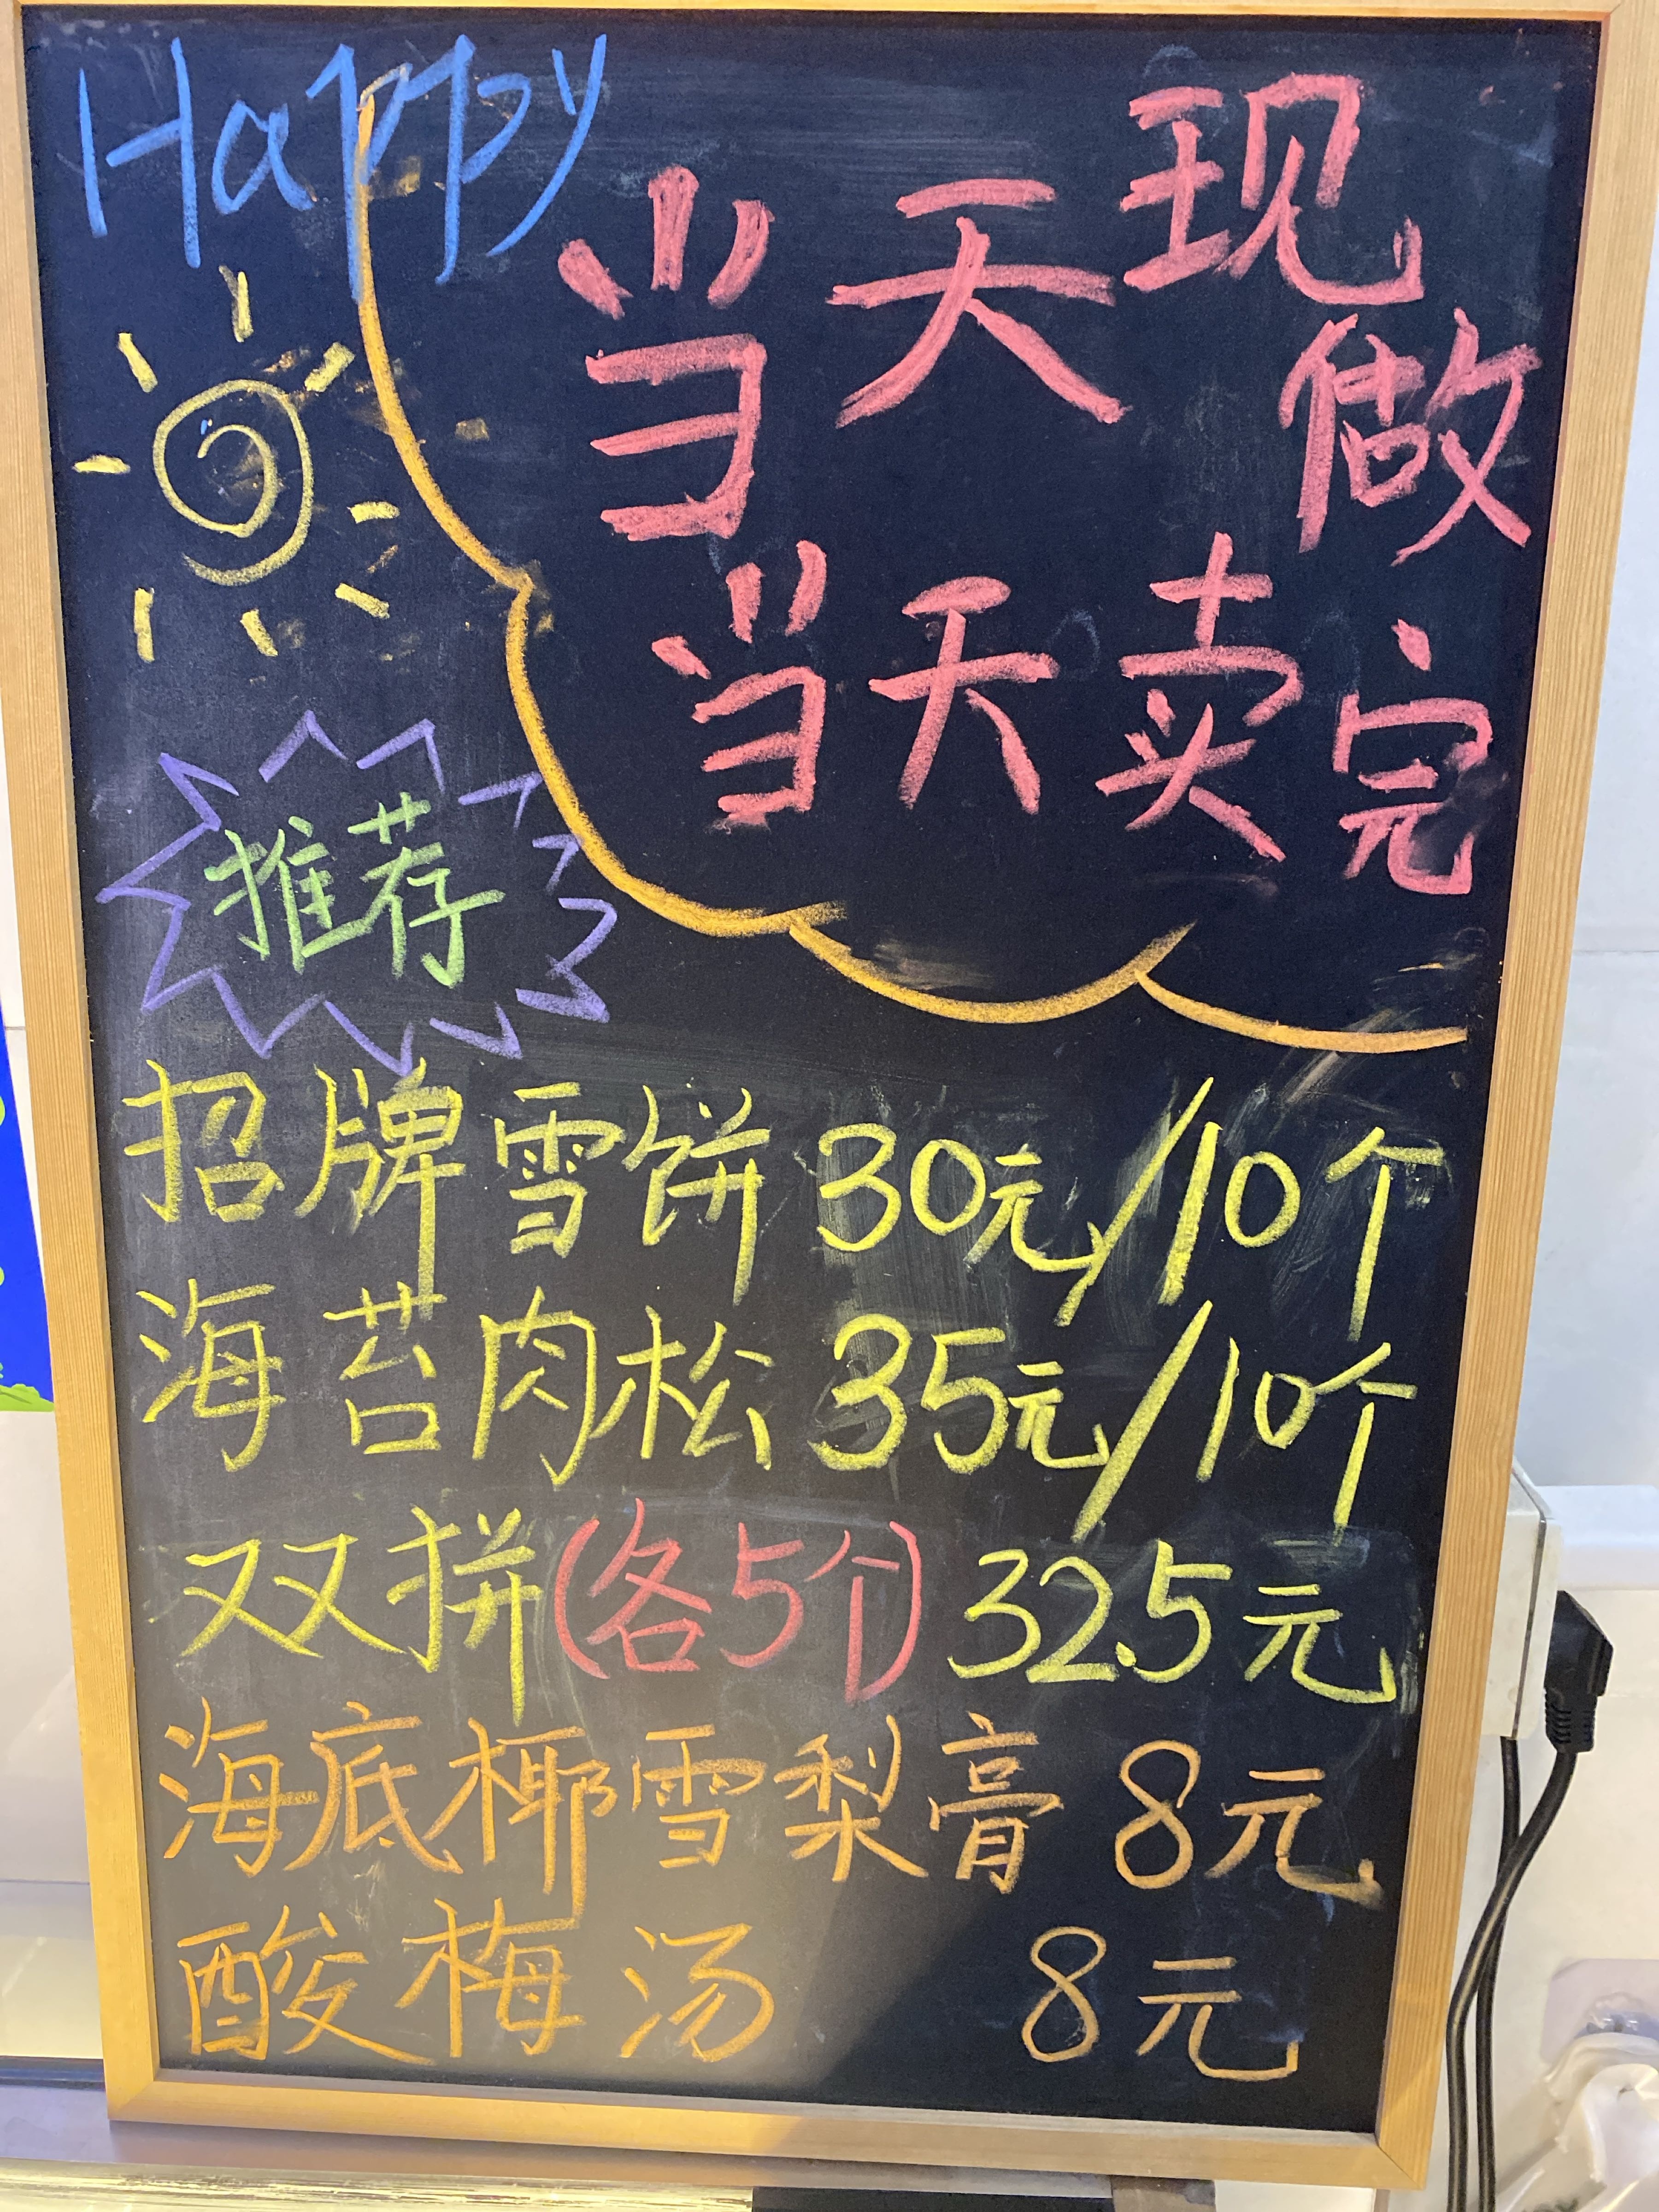 Happy
当天现做
当天卖完
推荐
招牌雪饼 30元/10个
海苔肉松 35元/10个
双拼(各5个) 32.5元
海底椰雪梨膏 8元
酸梅汤 8元